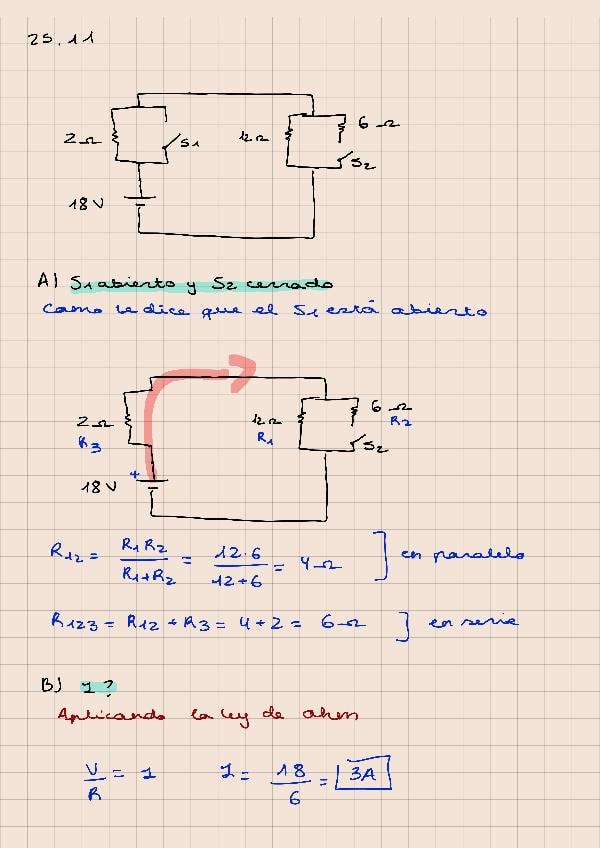 25.11
2Ω
S1
12Ω
6Ω
S2
18V
A) S1 abierto y S2 cerrado
Como te dice que el S1 está abierto
2Ω
R3
12Ω
R1
6Ω
R2
S2
+
18V
R12 = R1R2 / R1+R2 = 12·6 / 12+6 = 4Ω ] en paralelo
R123 = R12 + R3 = 4+2 = 6Ω ] en serie
B) I?
Aplicando la ley de ohm
V/R = I I = 18/6 = 3A